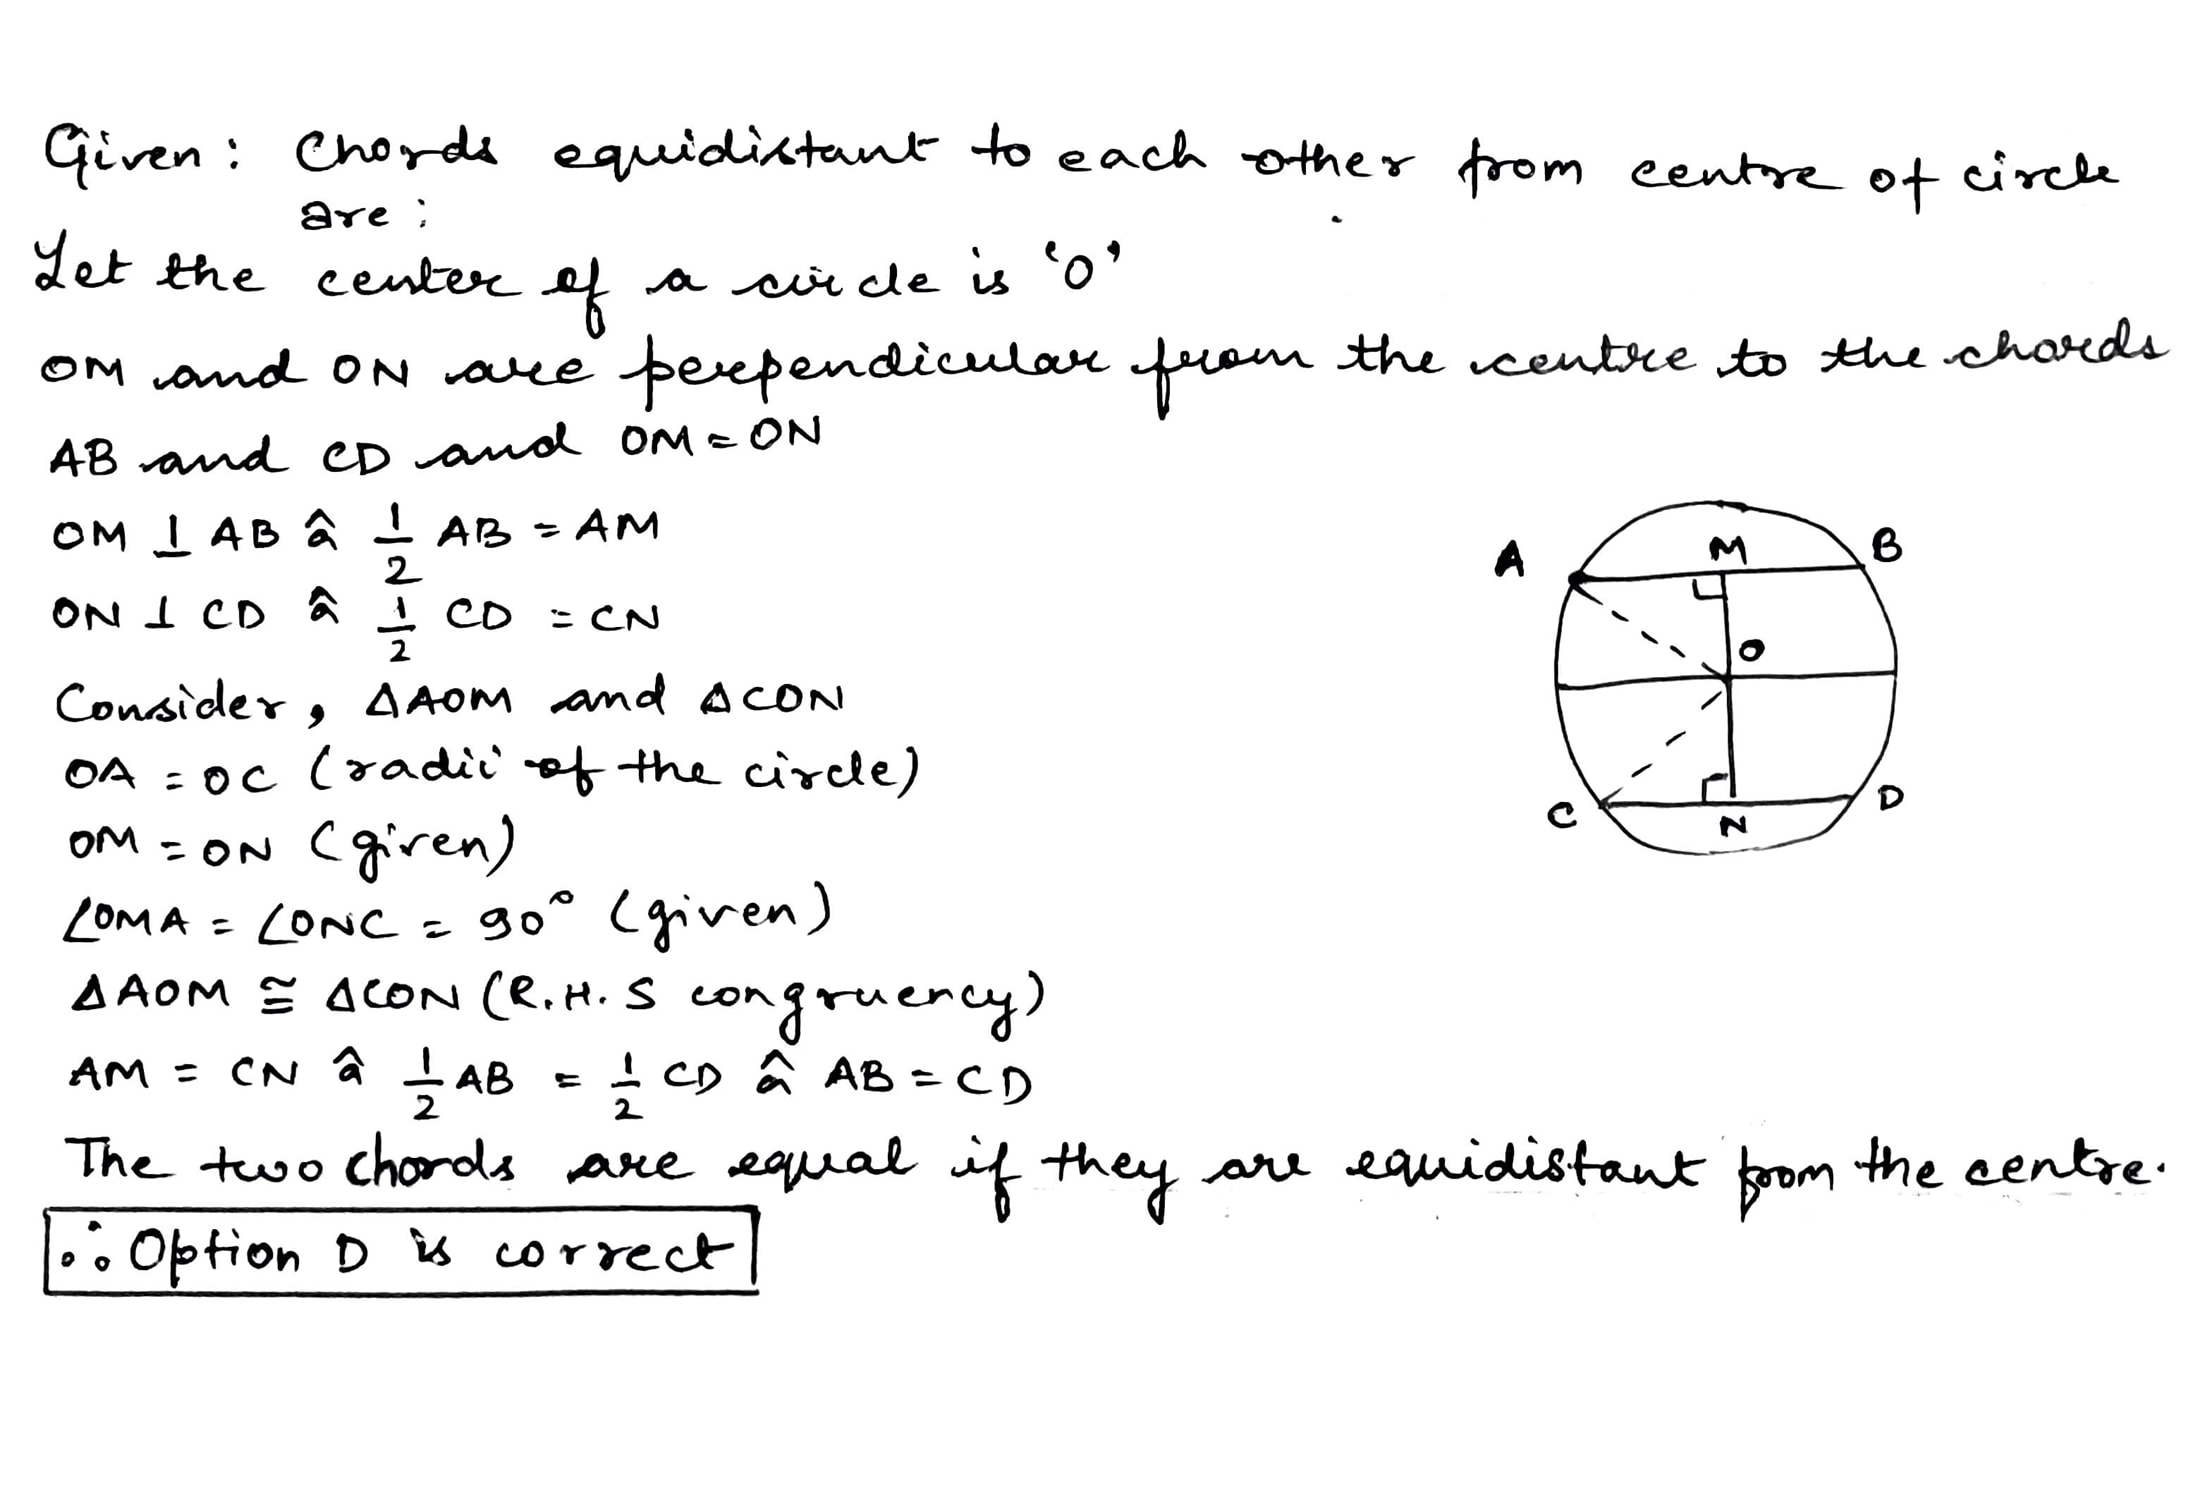 Given : Chords equidistant to each other from centre of circle
are :
Let the center of a circle is 'O'
OM and ON are perpendicular from the centre to the chords
AB and CD and OM = ON
OM ⊥ AB â 1/2 AB = AM
ON ⊥ CD â 1/2 CD = CN
Consider, ΔAOM and ΔCON
OA = OC (radii of the circle)
OM = ON (given)
∠OMA = ∠ONC = 90° (given)
ΔAOM ≅ ΔCON (R.H.S congruency)
AM = CN â 1/2 AB = 1/2 CD â AB = CD
The two chords are equal if they are equidistant from the centre.
∴ Option D is correct
A
M
B
O
C
N
D